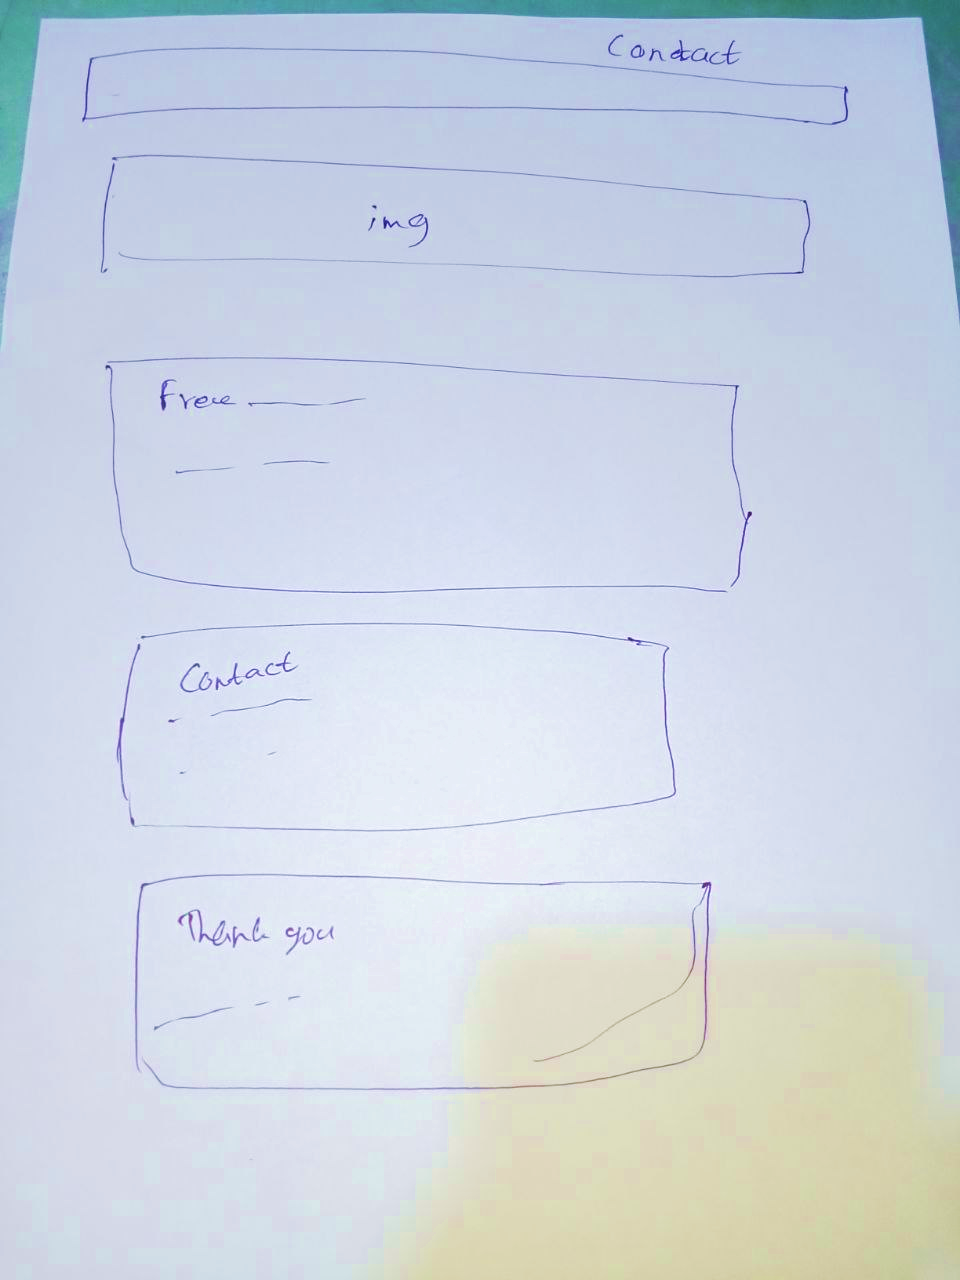 Contact
img
Free
Contact
Thank you